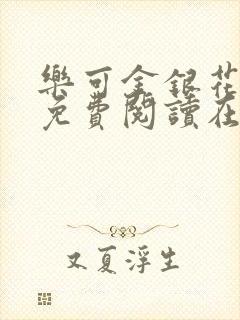 樂可金銀花
免費閱讀在
又夏浮生